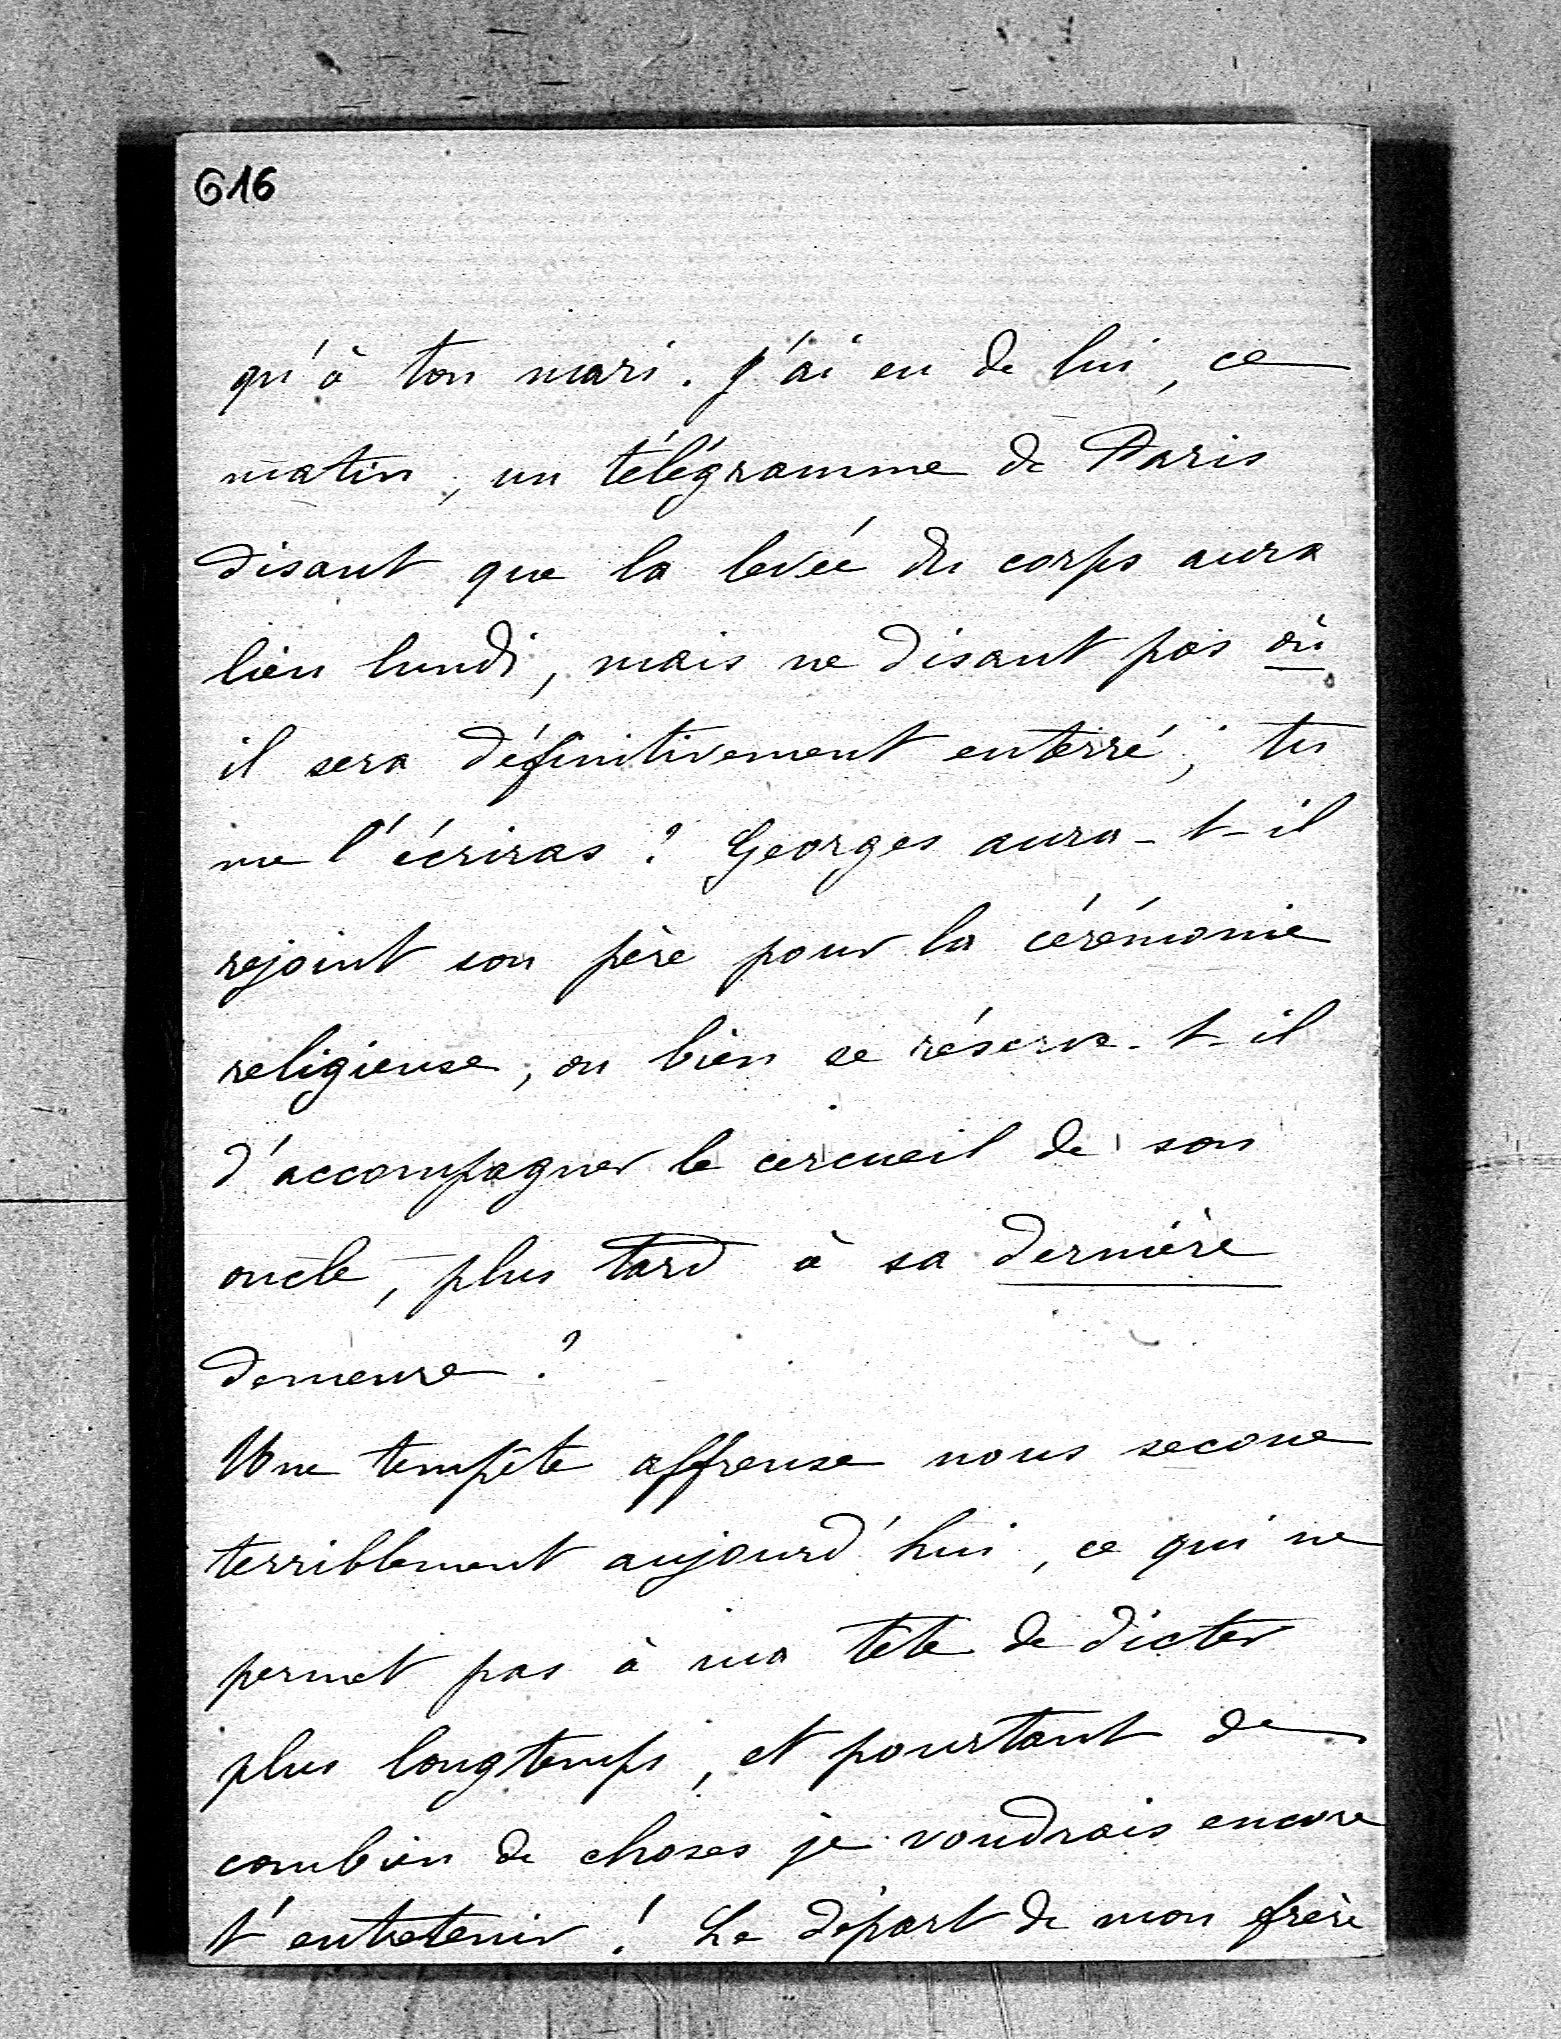 616
qu'à ton mari. J'ai eu de lui, ce
matin, un télégramme de Paris
disant que la levée du corps aura
lieu lundi, mais ne disant pas où
il sera définitivement enterré; tu
me l'écriras? Georges aura-t-il
rejoint son père pour la cérémonie
religieuse, ou bien se réserve-t-il
d'accompagner le cercueil de son
oncle, plus tard à sa dernière
demeure?
Une tempête affreuse nous secoue
terriblement aujourd'hui, ce qui ne
permet pas à ma tête de dicter
plus longtemps, et pourtant de
combien de choses je voudrais encore
t'entretenir! Le départ de mon frère